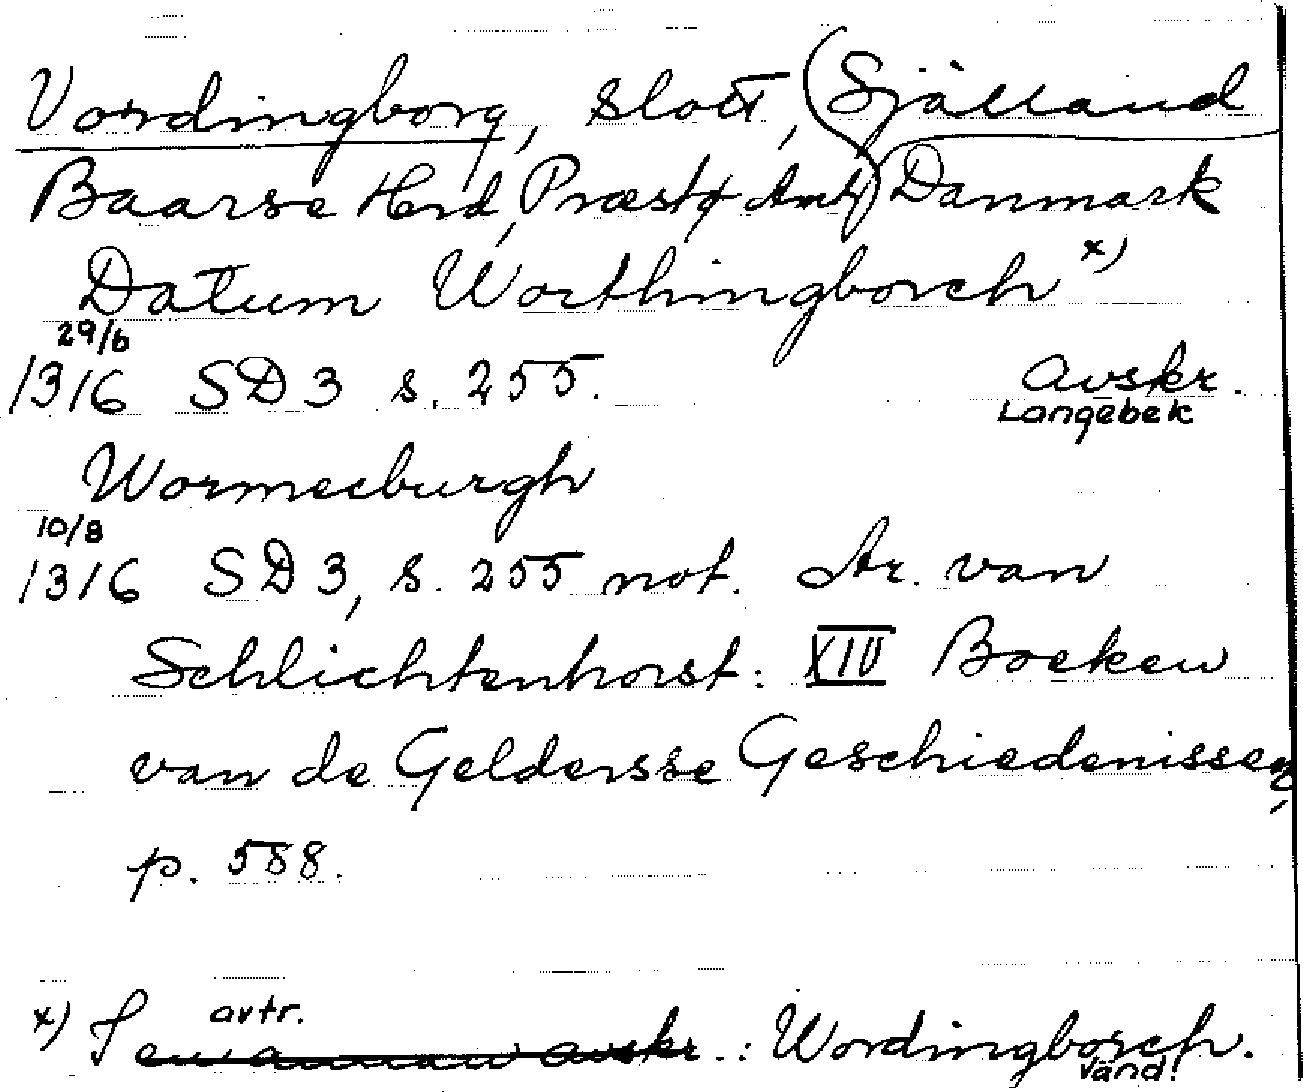 Vordingborg, slott, (Själland
Baarse Herd, Præstø Amt) Danmark
Datum Worthingborch x)
29/6
1316 SD 3 s. 255. Avskr.
Langebek
Wormesburgh
10/8
1316 SD 3, s. 255 not. Ar. van
Schlichtenhorst: XIV Boeken
van de Geldersse Geschiedenissen,
p. 588.
avtr.
x) I en annan avskr.: Wordingborch.
Vänd!